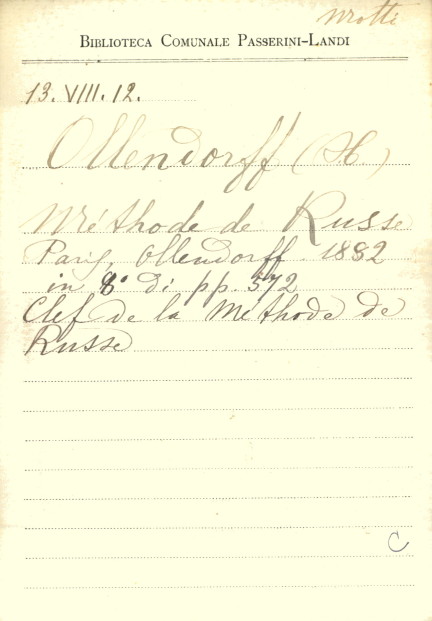 Wrotti
BIBLIOTECA COMUNALE PASSERINI-LANDI
13. VIII. 12.
Ollendorff (H.)
Méthode de Russe
Paris, Ollendorff 1882
in 8° di pp. 572
Clef de la Méthode de
Russe
C